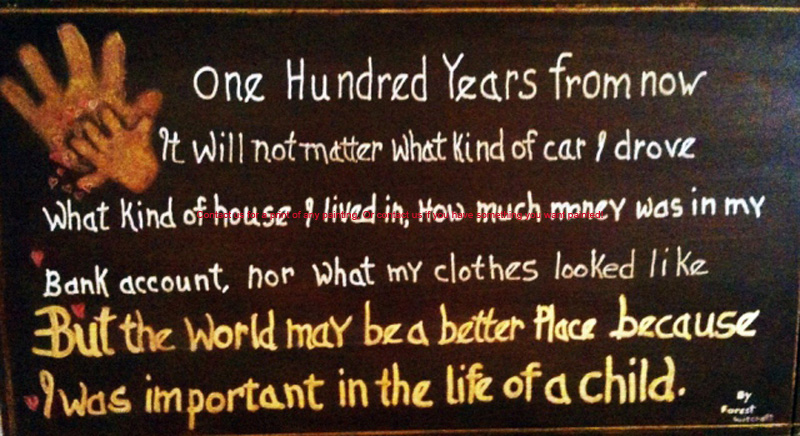 One Hundred Years from now
It will not matter what kind of car I drove
What kind of house I lived in, How much money was in my
Contact us for a print of any painting. Or contact us if you have something you want painted.
Bank account, nor what my clothes looked like
But the World may be a better Place because
I was important in the life of a child.
By
Forest